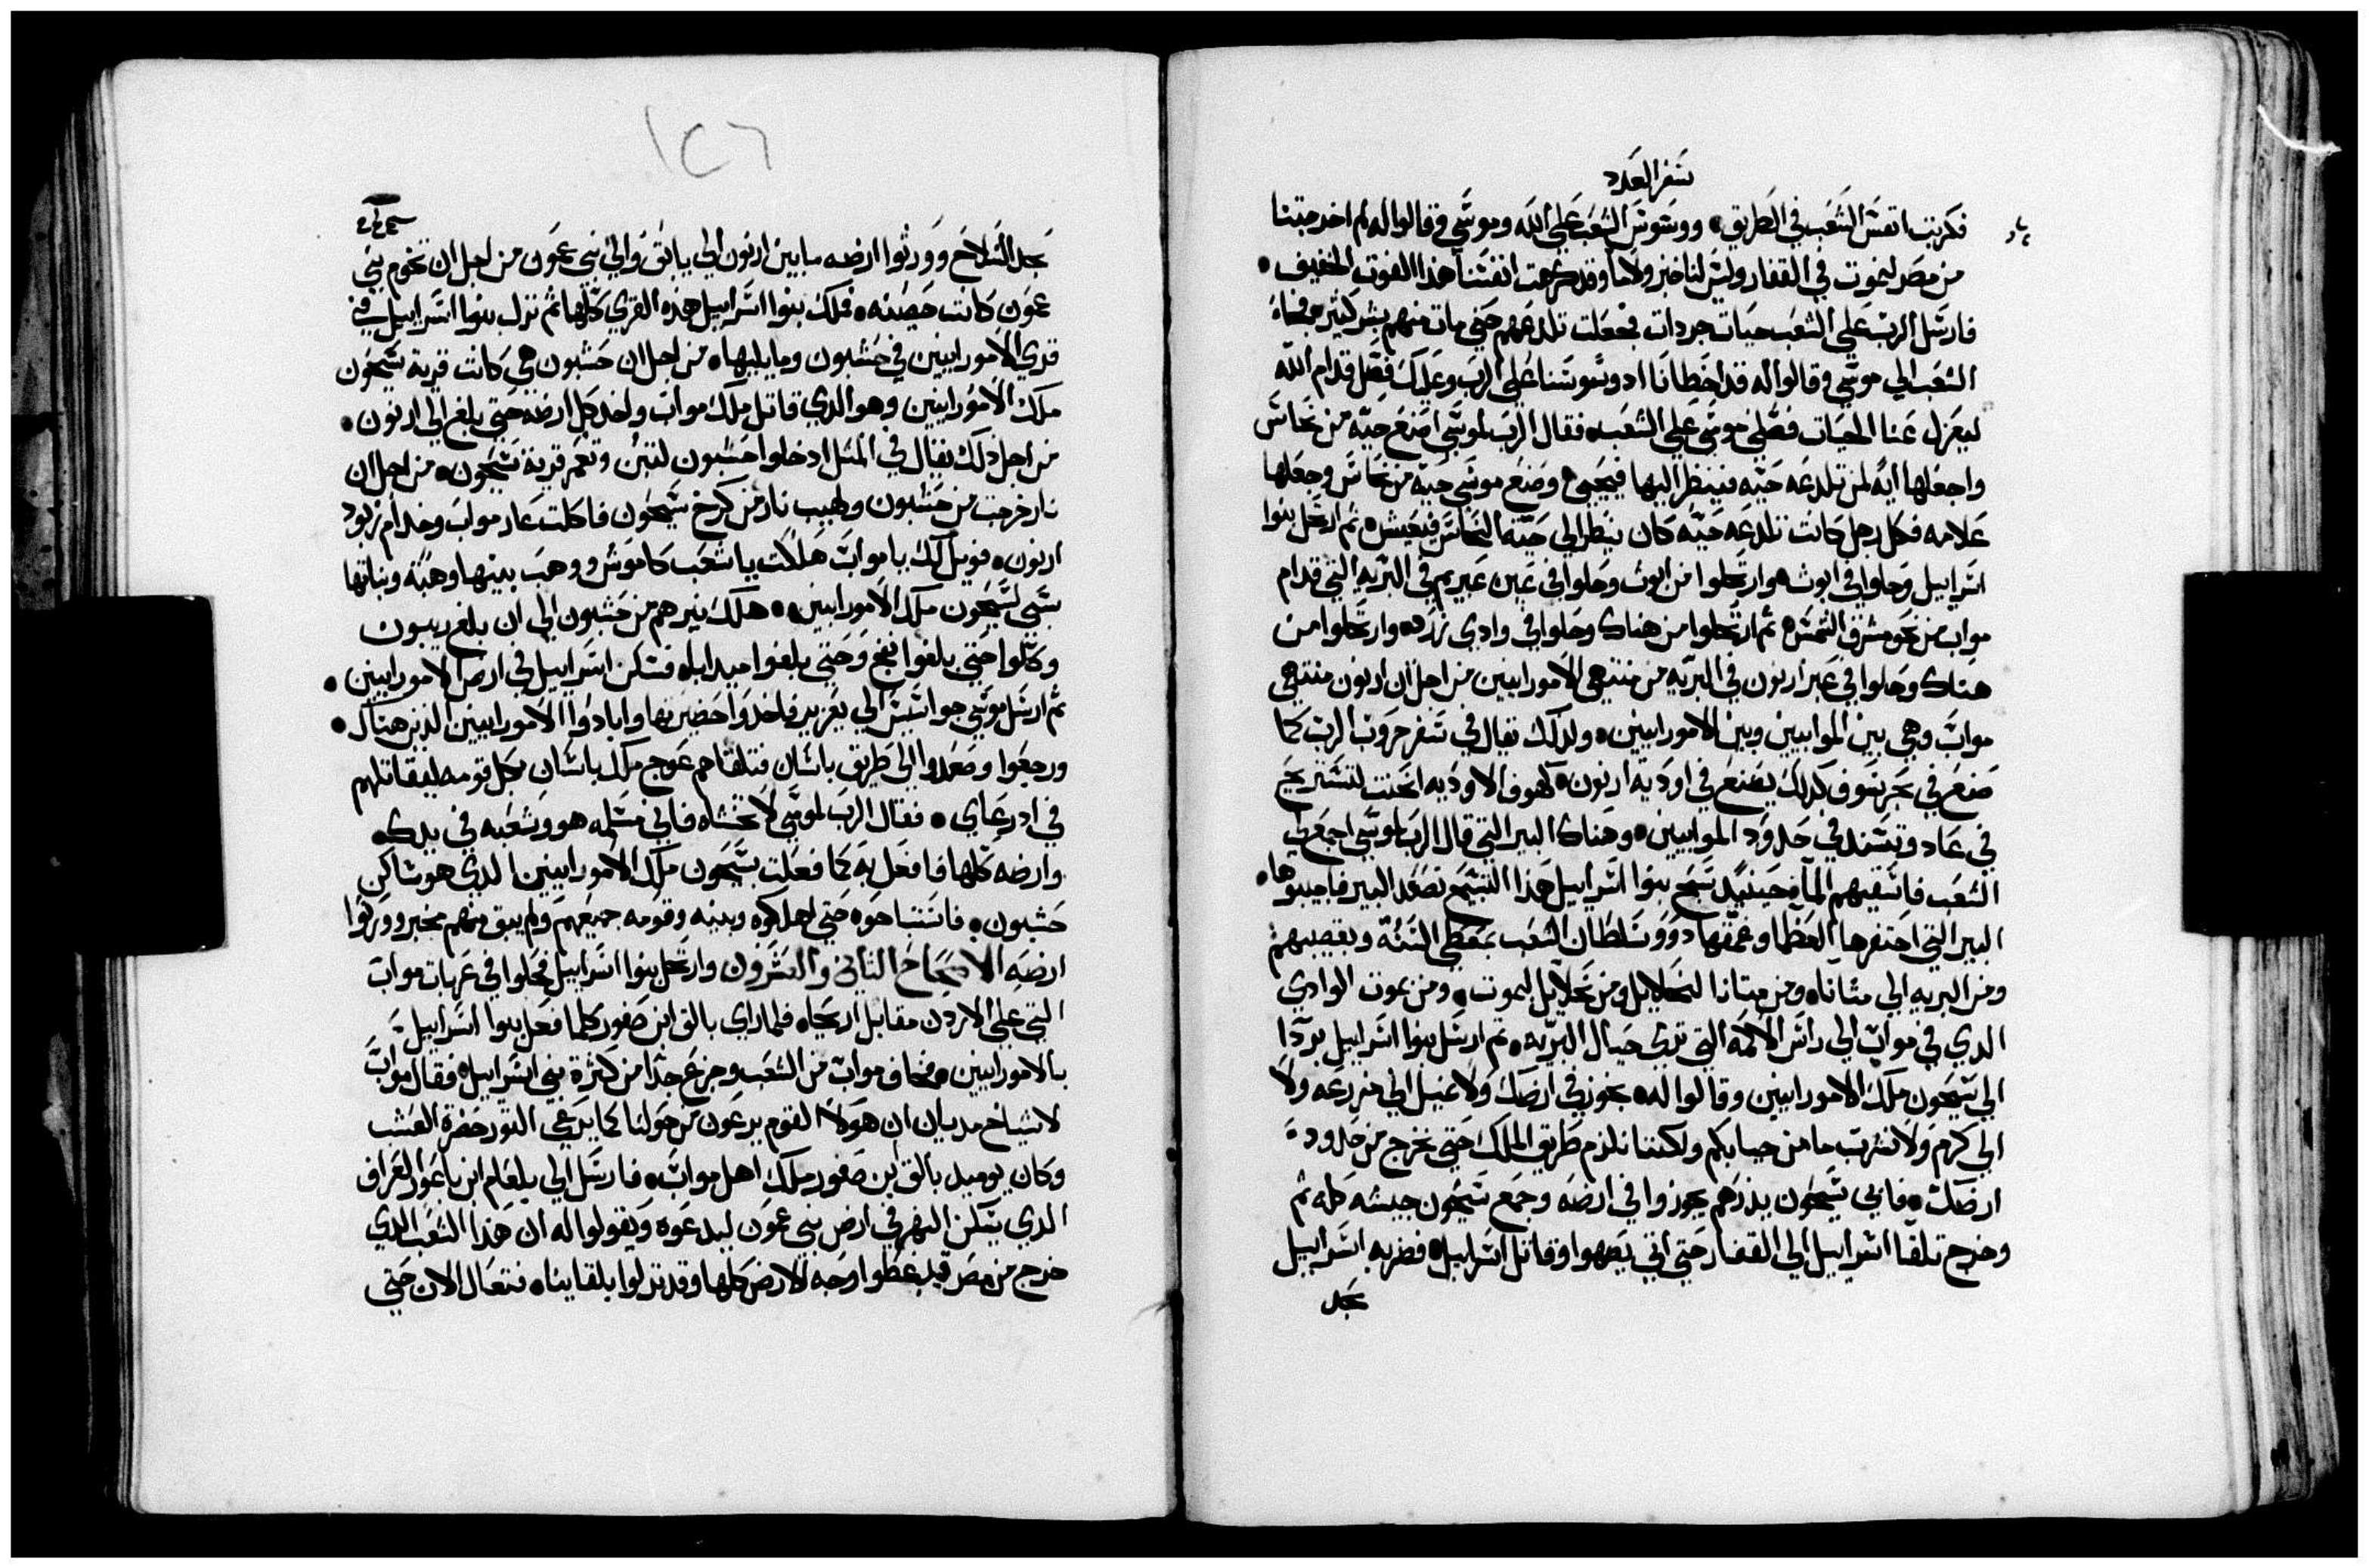 سفر العدد
فكربت انفس الشعب في الطريق، ووسوس الشعب على الله وموسى وقالوا له لم اخرجتنا
من مصر لنموت في القفار وليس لنا خبز ولا ما وقد كرهت انفسنا هذا القوت الخفيف •
فارسل الرب على الشعب حيات جردات فجعلت تلدغهم حتى مات منهم بشر كثير • فجاء
الشعب الي موسى وقالوا له قد اخطانا اد وسوسنا على الرب وعليك فصل قدام الله
ليعزل عنا الحيات فصلي موسى على الشعب، فقال الرب لموسى اصنع حية من نحاس
واجعلها ايه لمن تلدغه حيه فينظر اليها فيحيي، وصنع موسى حية من نحاس وجعلها
علامه فكل رجل كانت تلدغه حيه كان ينظر الي حية النحاس فيعيش، ثم ارتحل بنوا
اسراييل وحلوا في ابوث، وارتحلوا من ابوث وحلوا في عين عبريم في البريه التي قدام
مواب من نحو مشرق الشمس، ثم ارتحلوا من هناك وحلوا في وادي زرد، وارتحلوا من
هناك وحلوا في عبر ارنون في البريه من منتهى الامورانيين من اجل ان ارنون منتهي
مواب وهي بين الموابيين وبين الامورانيين، ولدلك نقال في سفر حروب الرب كما
صنع في بحر سوف كدلك يصنع في اودية ارنون، كهوف الاوديه انحنت لتستريح
في عاد وتستند في حدود الموابيين، وهناك البير التي قال الرب لموسى اجمع لي
الشعب فاسقيهم الما، حينيد سبح بنوا اسراييل هذا التسبيح تصعد البير فاجيبوها •
البير التي احتفرها العظما وعمقها دوو سلطان الشعب بمعطي السنة وبقضيبهم
ومن البريه الي متانا، ومن متانا لنحلاييل ومن نحلاييل لبموت، ومن بموت الوادي
الدي في مواب الي راس الاكمه التي تري حيال البريه، ثم ارسل بنوا اسراييل بردا
الي سيحون ملك الامورانيين وقالوا له، نجوز في ارضك ولا نميل الي مزرعه ولا
الي كرم ولا نشرب ما من جبابكم ولكننا نلزم طريق الملك حتي نخرج من حدود
ارضك، فابي سيحون يدرهم يجوزوا في ارضه وجمع سيحون جيشه كله ثم
وخرج تلقا اسراييل الي القفار حتي اتي يصهوا وقاتل اسراييل، فضربه اسراييل
بحد
١٢٦
بحد السلاح وورثوا ارضه ما بين ارنون الي يابق والي بني عمون من اجل ان تخوم بني
عمون كانت حصينه، فملك بنوا اسراييل هذه القري كلها ثم نزل بنوا اسراييل في
قري الامورانيين في حشبون وما يليها، من اجل ان حشبون هي كانت قرية سيحون
ملك الامورانيين وهو الدي قاتل ملك مواب واخد كل ارضه حتى بلغ الي ارنون •
من اجل دلك نقال في المثل ادخلوا حشبون لتبن وتعمر قرية سيحون، من اجل ان
نار خرجت من حشبون ولهيب نار من كرخ سيحون فاكلت عار مواب وخدام ربود
ارنون، فويل لك يا مواب هلكت يا شعب كاموش ووهب بنيها وهبة وبناتها
سبي لسيحون ملك الامورانيين، هلك نيرهم من حشبون الي ان بلغ ريبون
وكلوا حتي بلغوا نفح وحتي بلغوا ميدابا، فسكن اسراييل في ارض الامورانيين •
ثم ارسل موسى جواسيس الي يعزير فاخدوا حضيرتها وابادوا الامورانيين الذين هناك •
ورجعوا وصعدوا الي طريق باشان فتلقاهم عوج ملك باشان بكل قومه ليقاتلهم
في ادرعاي • فقال الرب لموسى لا تخشاه فاني مسلمه هو وشعبه في يدك
وارضه كلها فافعل به كما فعلت بسيحون ملك الامورانيين الدي هو ساكن
حشبون، فاستباحوه حتي اهلكوه وبنيه وقومه جميعهم ولم يبق منهم مخبر وورثوا
ارضه الاصحاح الثاني والعشرون وارتحل بنوا اسراييل فحلوا في عربات مواب
التي على الاردن مقابل اريحا، فلما راي بالق ابن صفور كلما فعل بنوا اسراييل
بالامورانيين، فخاف مواب من الشعب وجزع جدا من كثرة بني اسراييل، فقال مواب
لاشياخ مديان ان هولا القوم يرعون من حولنا كما يرعي الثور خضرة العشب
وكان يوميد بالق ابن صفور ملك اهل مواب، فارسل الي بلعام ابن باعور العراف
الدي يسكن النهر في ارض بني عمون ليدعوه ويقولوا له ان هذا الشعب الدي
خرج من مصر قد غطوا وجه الارض كلها وقد نزلوا بلقاينا، فتعال الان حتي